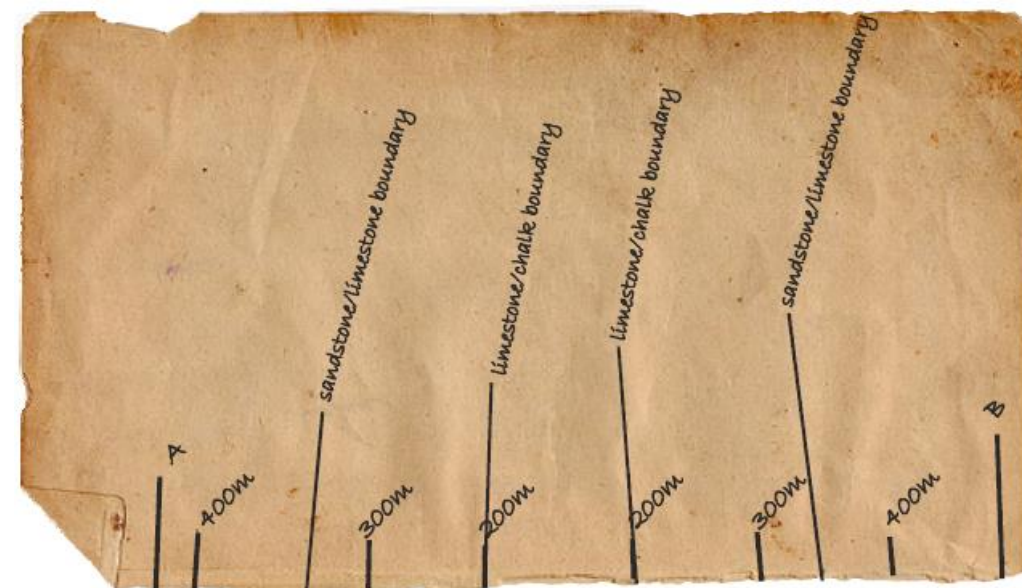 A
400m
sandstone/limestone boundary
300m
200m
limestone/chalk boundary
200m
limestone/chalk boundary
300m
sandstone/limestone boundary
400m
B